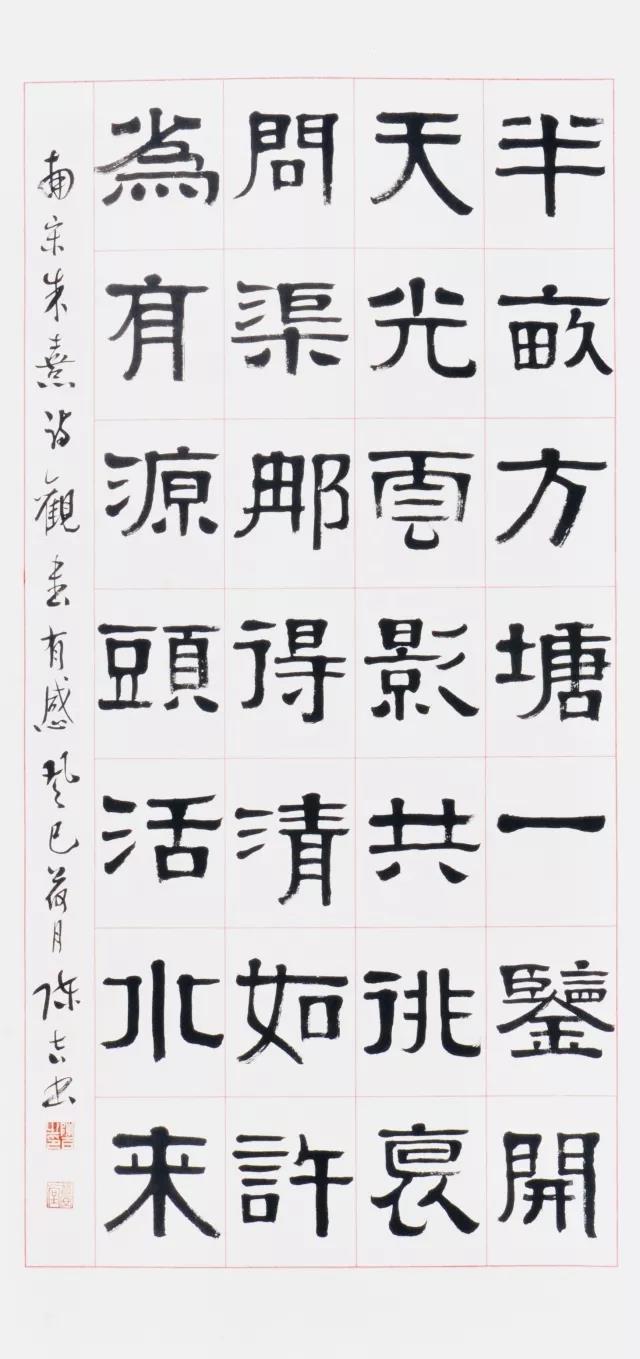 半畝方塘一鑒開
天光雲影共徘徊
問渠那得清如許
為有源頭活水来
南宋朱熹詩觀書有感癸巳荷月陳吉書